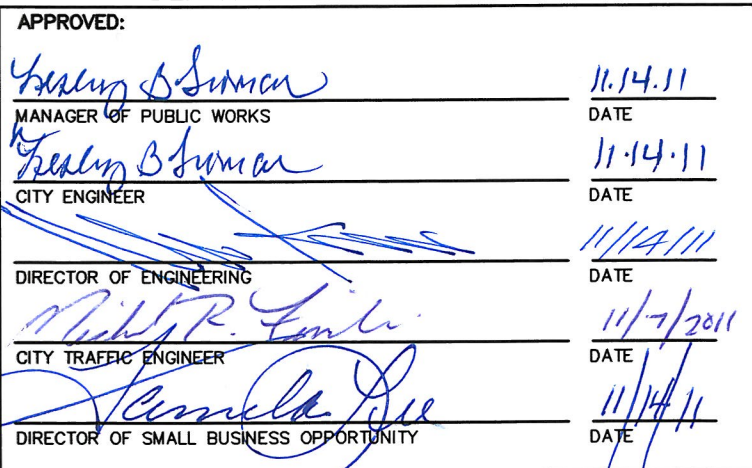 APPROVED:
B 11.14.11
MANAGER OF PUBLIC WORKS DATE
B 11.14.11
CITY ENGINEER DATE
11/14/11
DIRECTOR OF ENGINEERING DATE
R. 11/7/2011
CITY TRAFFIC ENGINEER DATE
Pamela 11/14/11
DIRECTOR OF SMALL BUSINESS OPPORTUNITY DATE